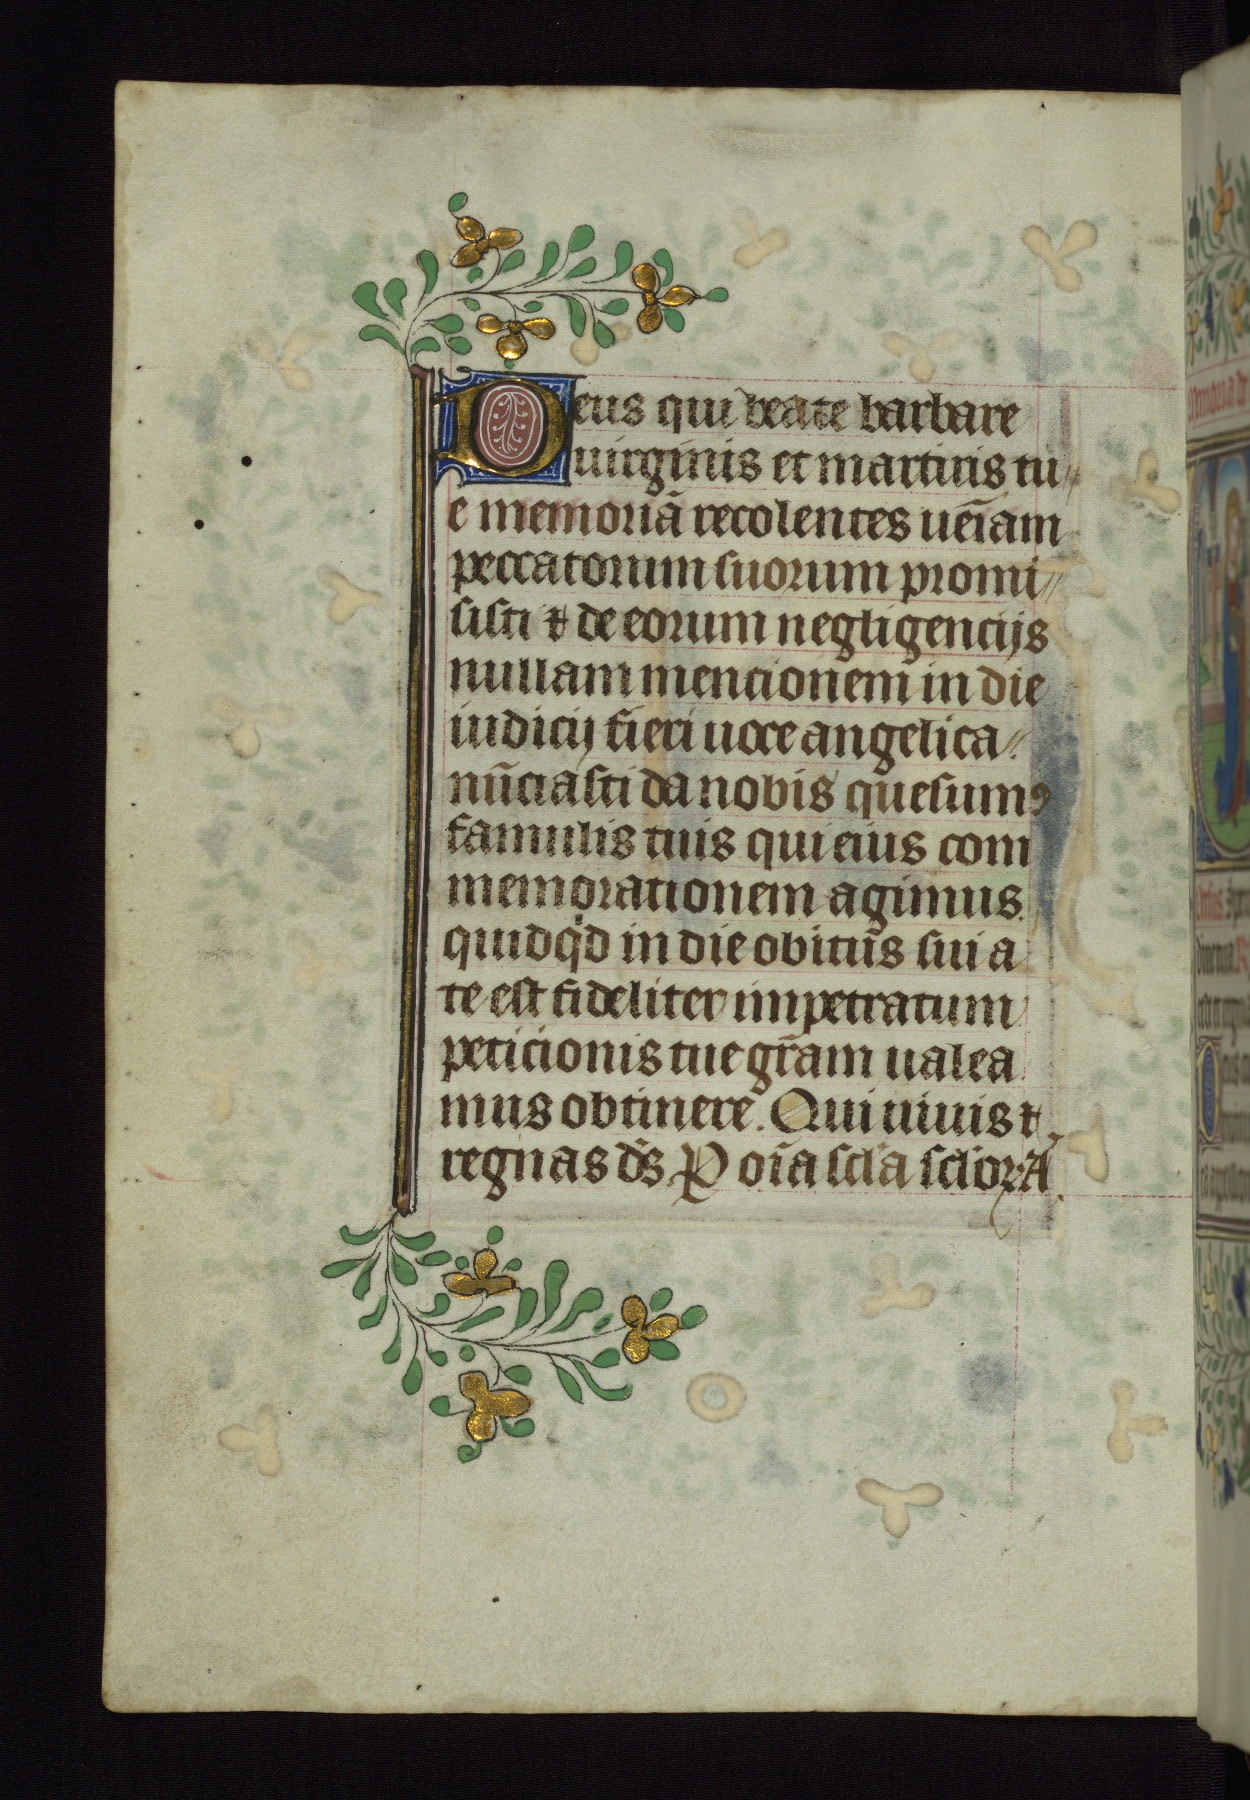 Deus qui beate barbare
uirginis et martiris tu//
e memoriā recolentes ueīam
peccatorum suorum promi//
sisti ⁊ de eorum negligencijs
nullam mencionem in die
iudicij fieri uoce angelica//
nūciasti da nobis quesumꝰ
famulis tuis qui eius com
memorationem agimus.
quidqͥd in die obitus sui a
te est fideliter impetratum
peticionis tue gr̄am ualea
mus obtinere. Qui uiuis ⁊
regnas ds̄. P oīa scl̓a scl̓oꝝ. A.